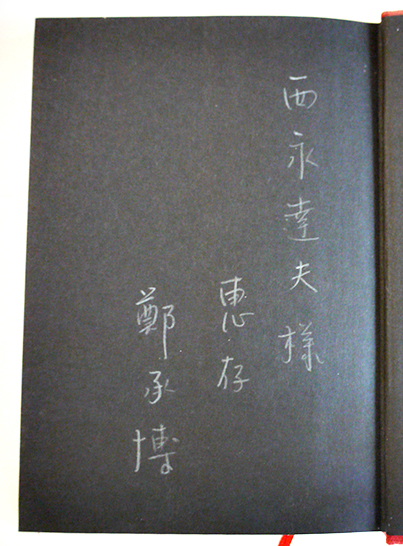 西永達夫様
恵存
鄭承博